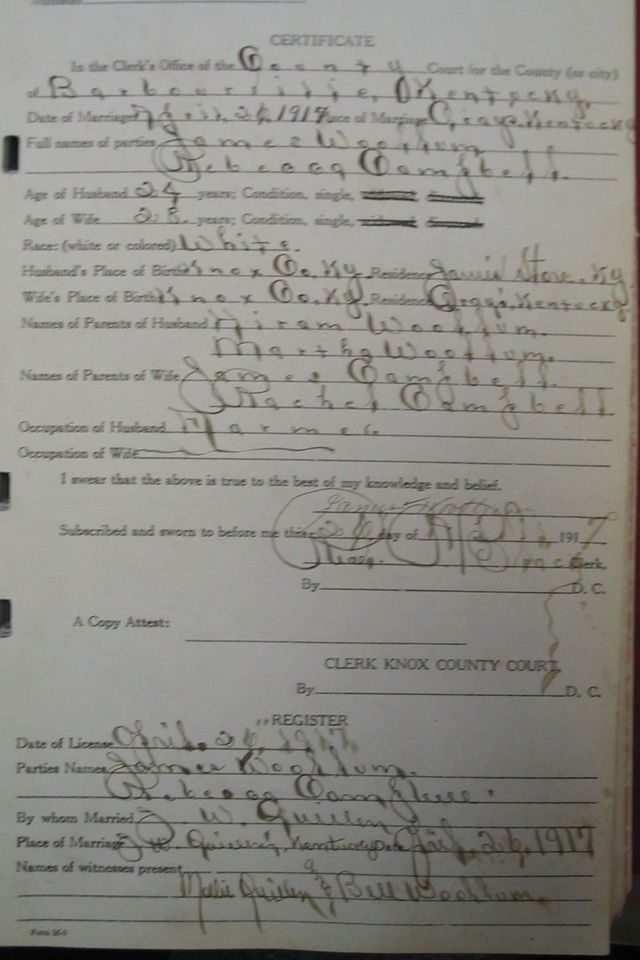 CERTIFICATE
In the Clerk's Office of the County Court for the County (or city)
of Barbourville, Kentucky.
Date of Marriage April, 26, 1917 Place of Marriage Grays, Kentucky
Full names of parties James Woollum.
Rebecca Campbell.
Age of Husband 24 years; Condition, single, widowed divorced
Age of Wife 28. years; Condition, single, widowed divorced
Race: (white or colored) White.
Husband's Place of Birth Knox Co, Ky. Residence Store, Ky.
Wife's Place of Birth Knox Co, Ky. Residence Kentucky.
Names of Parents of Husband Hiram Woollum.
Martha Woollum.
Names of Parents of Wife James Campbell.
Rachel Campbell
Occupation of Husband Farmer.
Occupation of Wife
I swear that the above is true to the best of my knowledge and belief.
James
Subscribed and sworn to before me this 26 day of April 1917
Clerk.
By D. C.
A Copy Attest:
CLERK KNOX COUNTY COURT
By D. C.
REGISTER
Date of License April, 26, 1917,
Parties Names James Woollum.
Rebecca Campbell.
By whom Married J. W. Quillen
Place of Marriage J. W. Quillen's, Kentucky Date April, 26, 1917
Names of witnesses present
Mollie Quillen & Bill Woollum.